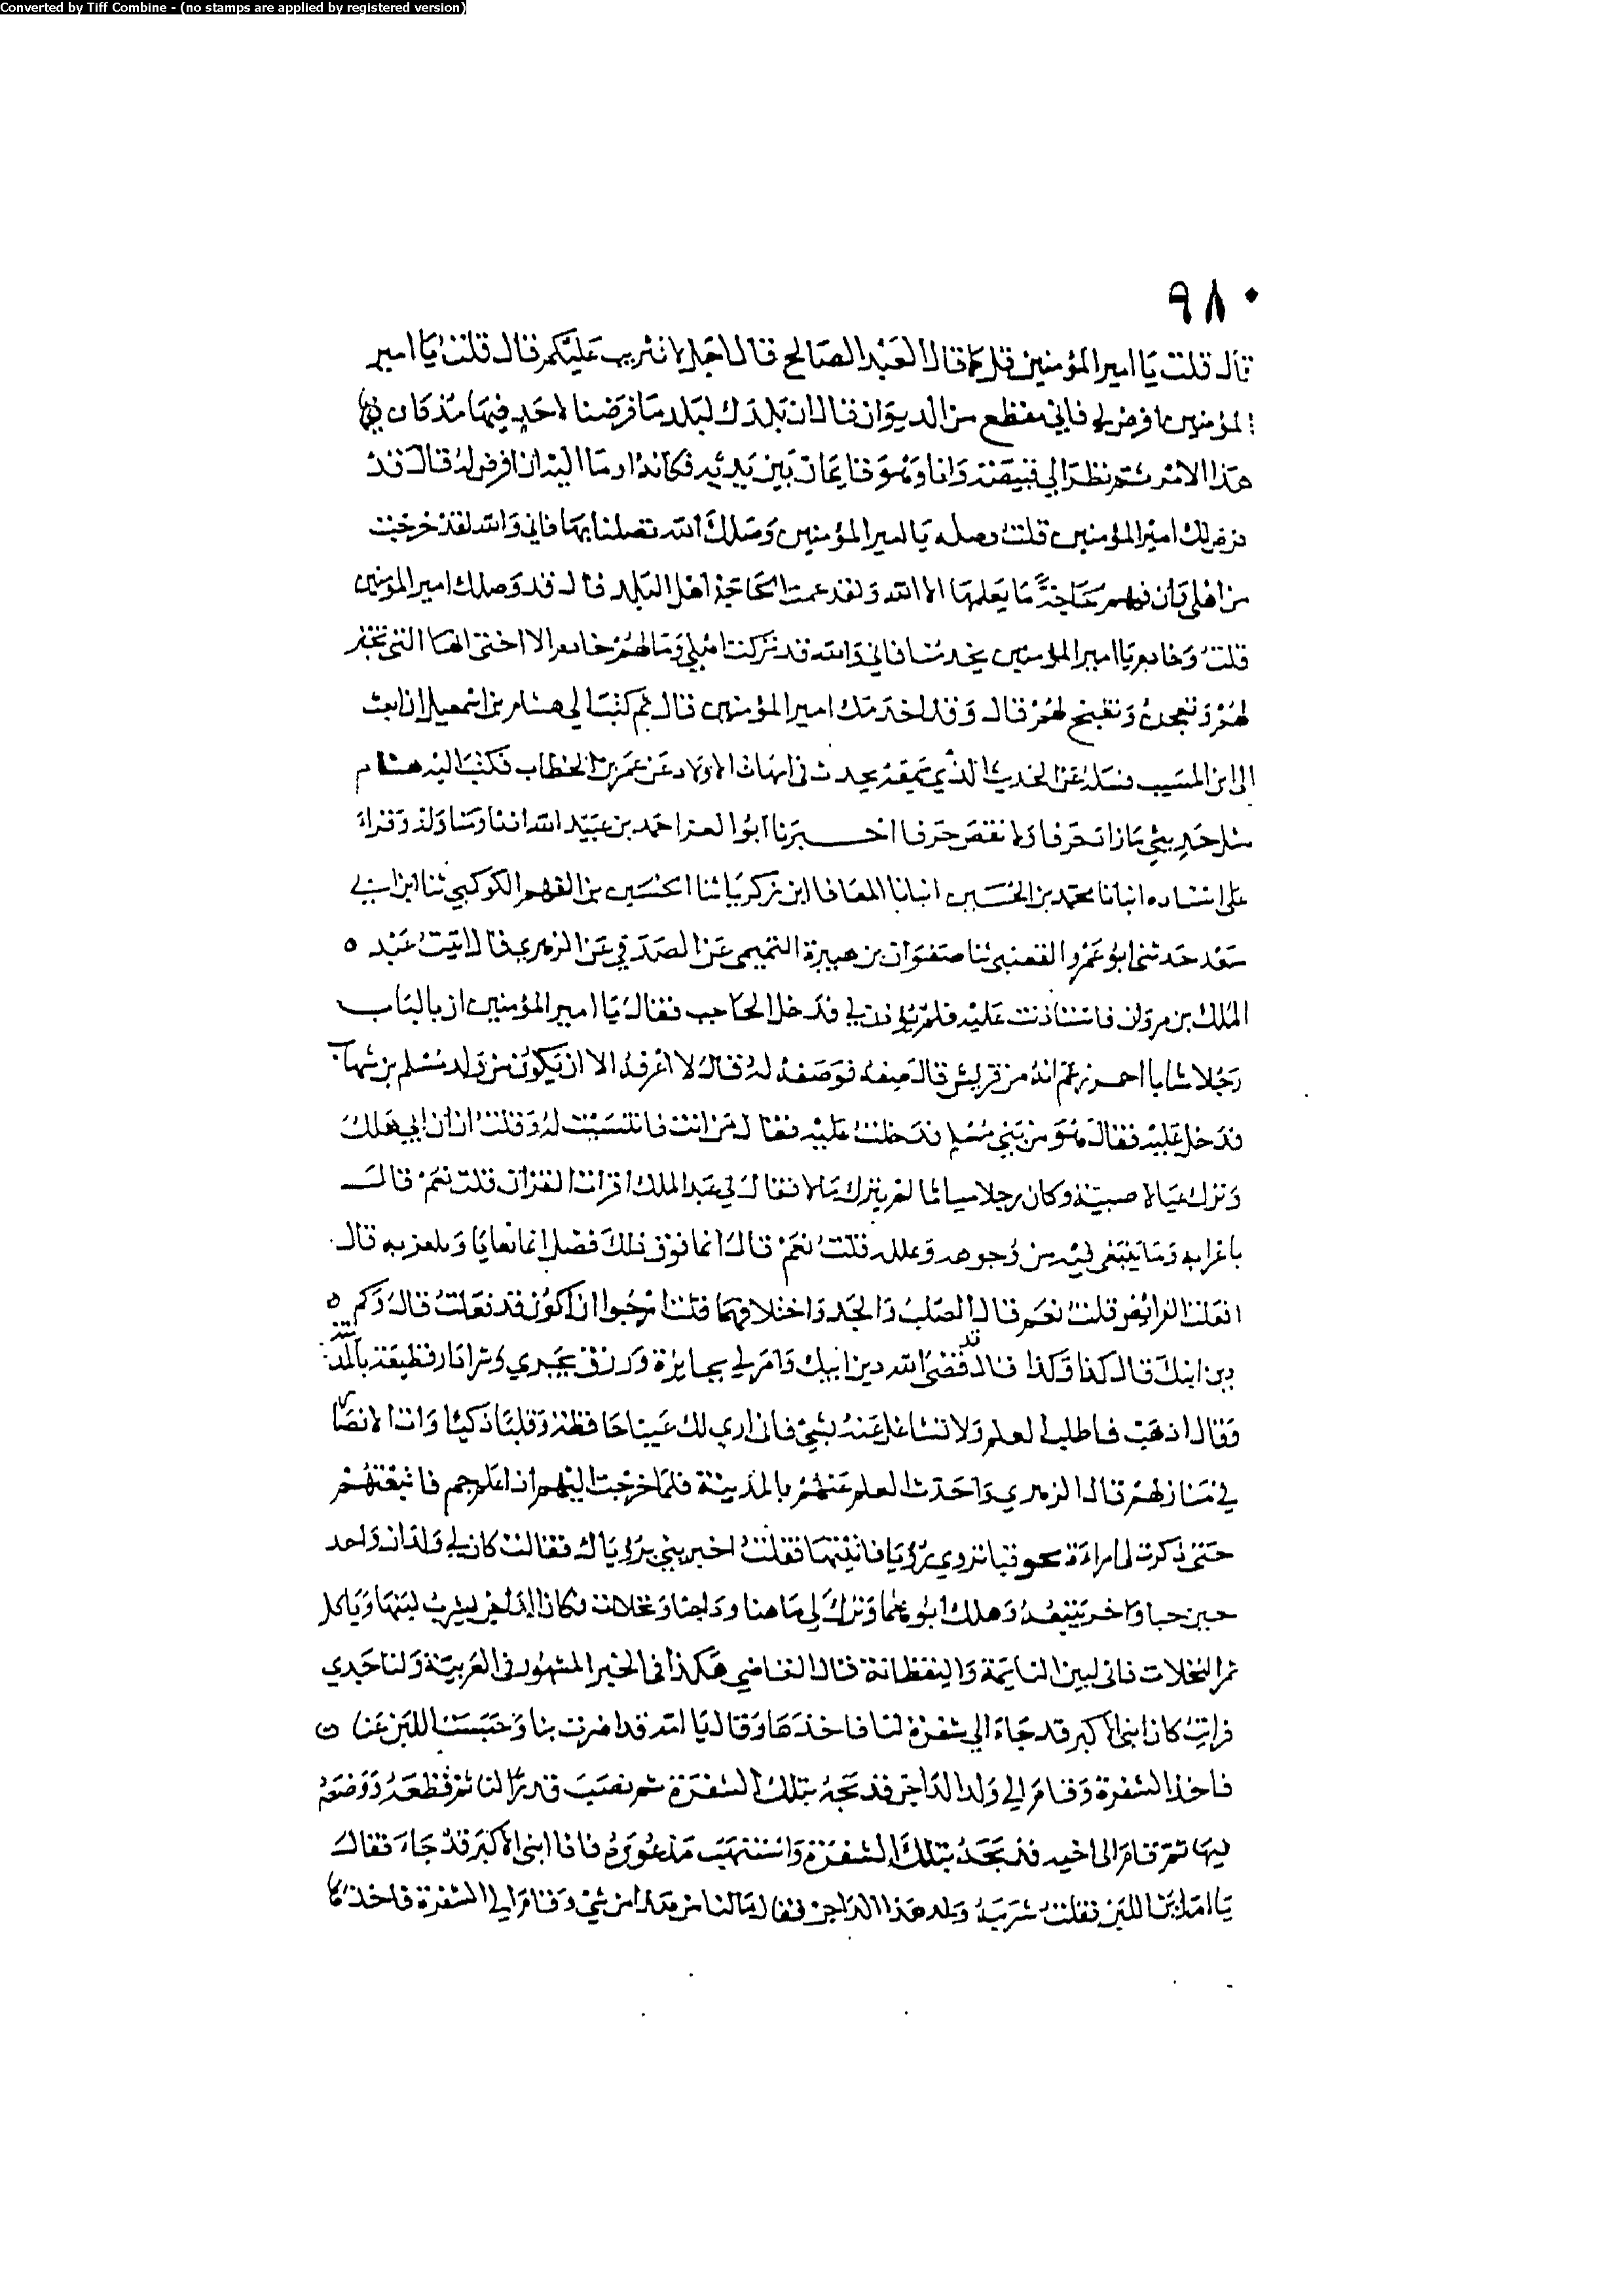 Converted by Tiff Combine - (no stamps are applied by registered version)
٩٨٠
قال قلت يا امير المؤمنين قل كما قال العبد الصالح قال اجل لا تثريب عليكم قال قلت يا امير
المؤمنين افرض لي فاني منقطع من الديوان قال ان بلدك لبلد ما فرضنا لاحد فيها مذ كان
هذا الامر ثم نظر الي قبيصة وانا وهو قايمان بين يديه فكانه اوما اليه ان افرض له قال قد
فرض لك امير المؤمنين قلت وصله يا امير المؤمنين وصلك الله تصلنا بها فاني والله لقد خرجت
من اهلي وان فيهم حاجة ما يعلمها الا الله ولقد عمت الحاجة اهل البلد قال قد وصلك امير المؤمنين
قلت وخادم يا امير المؤمنين يخدمنا فاني والله قد تركت اهلي وما لهم خادم الا اختي انها التي تخبز
لهم وتعجن وتطبخ لهم قال وقد اخدمك امير المؤمنين قال ثم كتب الي هشام بن اسمعيل ان ابعث
الى ابن المسيب فسله عن الحديث الذي سمعته يحدث في امهات الاولاد عن عمر بن الخطاب فكتب اليه هشام
مثل حديثي ما زاد حرفا ولا نقص حرفا اخبرنا ابو العز احمد بن عبيد الله اذنا ومناولة وقراء
على اسناده انبانا محمد بن الحسين انبانا المعافا ابن زكريا ثنا الحسين بن القسم الكوكبي ثنا ابن ابي
سعد حدثني ابو عمرو القعنبي ثنا صفوان بن هبيرة التميمي عن الصدفي عن الزهري قال اتيت عبد
الملك بن مروان فاستاذنت عليه فلم يؤذن لي فدخل الحاجب فقال يا امير المؤمنين ان بالباب
رجلا شابا احمر زعم انه من قريش قال صفه فوصفه له قال لا اعرفه الا ان يكون من ولد مسلم بن شهاب
فدخل عليه فقال هو من بني مسلم فدخلت عليه فقال من انت فانتسبت له وقلت ان ابي هلك
وترك عيالا صبية وكان رجلا متلافا لم يترك مالا فقال لي عبد الملك اقرات القران قلت نعم قال
باعرابه وما ينبغي فيه من وجوهه وعلله قلت نعم قال انما فوق ذلك فضل انما يعايا ويلغز به قال
افعلمت الفرائض قلت نعم قال الصلب والجد واختلافهما قلت ارجوا ان اكون قد فعلت قال وكم
دين ابيك قال كذا وكذا قال قد قضى الله دين ابيك وامر لي بجايزة ورزق يجري وشرا دار قطيعة بالمدينة
وقال اذهب فاطلب العلم ولا تشاغل عنه بشئ فاني اري لك عينا حافظة وقلبا ذكيا وات الانصار
في منازلهم قال الزهري واخذت العلم عنهم بالمدينة فلما خرجت اليهم اذا علم جم فاتبعتهم
حتى ذكرت لي امراءة نحو قبا تروي رؤيا فاتيتها فقلت اخبريني برؤياك فقالت كان لي ولدان واحد
حين حبا واخر يتبعه وهلك ابوهما وترك لي ماهنا وداجنا ونخلات فكان الداجن نشرب لبنها وياكل
ثمر النخلات فاني لبين النايمة واليقظانة قال القاضي هكذا في الخبر المشهور في العربية ولنا جدي
فرايت كان ابني الاكبر قد جاء الي شفرة لنا فاخذها وقال يا امه قد اضرت بنا وحبست اللبن عنا
فاخذ الشفرة وقام الي ولد الداجن فذبحه بتلك الشفرة ثم نصب قدرا لنا ثم قطعه ووضعه
فيها ثم قام الى اخيه فذبحه بتلك الشفرة واستنهبت مذعورة فاذا ابني الاكبر قد جاء فقال
يا امه اين اللبن فقلت شربه ولد هذا الداجن فقال ما لنا من هذا من شئ وقام الي الشفرة فاخذها